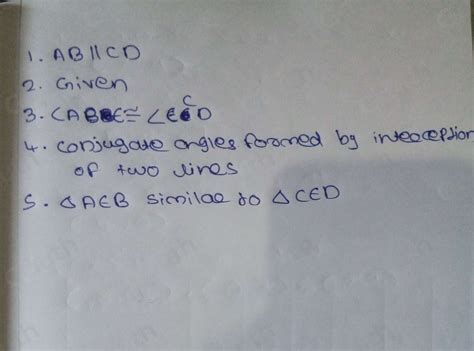 1. AB || CD
2. Given
3. ∠ABE ≅ ∠ECD
4. conjugate angles formed by interception
of two lines
5. △AEB similar to △CED